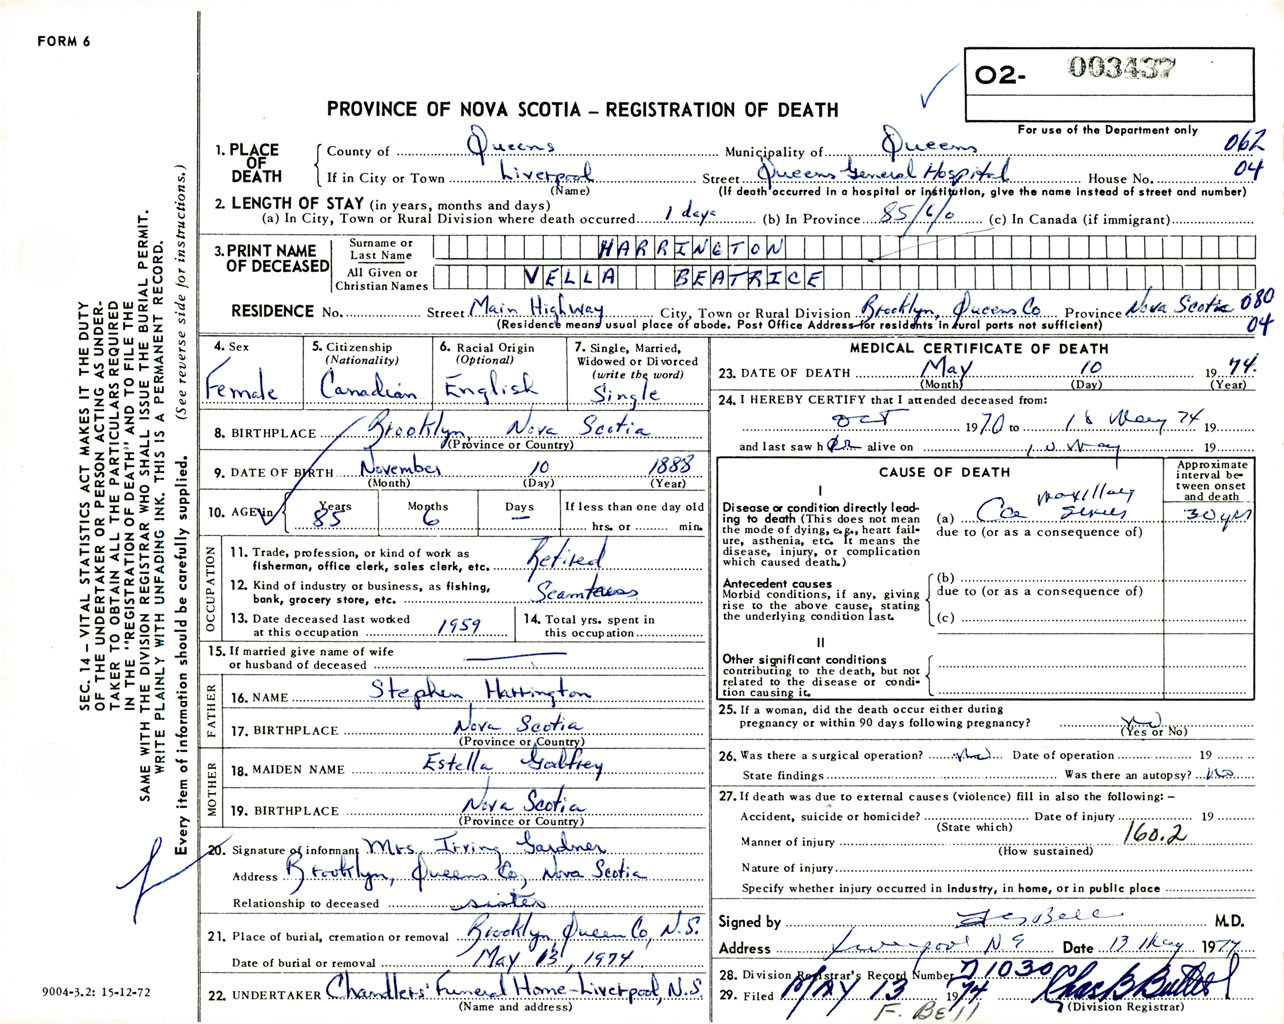 FORM 6
O2- 003437
PROVINCE OF NOVA SCOTIA – REGISTRATION OF DEATH
For use of the Department only
1. PLACE OF DEATH
County of Queens Municipality of Queens 062
If in City or Town Liverpool Street Queens General Hospital House No. 04
(Name) (If death occurred in a hospital or institution, give the name instead of street and number)
2. LENGTH OF STAY (in years, months and days)
(a) In City, Town or Rural Division where death occurred 1 days (b) In Province 85/6/0 (c) In Canada (if immigrant)
3. PRINT NAME OF DECEASED
Surname or Last Name HARRINGTON
All Given or Christian Names VELLA BEATRICE
RESIDENCE No. Street Main Highway City, Town or Rural Division Brooklyn, Queens Co Province Nova Scotia 080
(Residence means usual place of abode. Post Office Address for residents in rural parts not sufficient) 04
4. Sex
Female
5. Citizenship
(Nationality)
Canadian
6. Racial Origin
(Optional)
English
7. Single, Married,
Widowed or Divorced
(write the word)
Single
8. BIRTHPLACE Brooklyn, Nova Scotia
(Province or Country)
9. DATE OF BIRTH November 10 1888
(Month) (Day) (Year)
10. AGE in Years Months Days If less than one day old
85 6 — hrs. or min.
OCCUPATION
11. Trade, profession, or kind of work as
fisherman, office clerk, sales clerk, etc. Retired
12. Kind of industry or business, as fishing,
bank, grocery store, etc. Seamtress
13. Date deceased last worked
at this occupation 1959
14. Total yrs. spent in
this occupation
15. If married give name of wife
or husband of deceased
FATHER
16. NAME Stephen Harrington
17. BIRTHPLACE Nova Scotia
(Province or Country)
MOTHER
18. MAIDEN NAME Estella Godfrey
19. BIRTHPLACE Nova Scotia
(Province or Country)
20. Signature of informant Mrs. Irving Gardner
Address Brooklyn, Queens Co, Nova Scotia
Relationship to deceased sister
21. Place of burial, cremation or removal Brooklyn, Queen Co, N.S.
Date of burial or removal May 13, 1974
22. UNDERTAKER Chandlers' Funeral Home-Liverpool, N.S.
(Name and address)
MEDICAL CERTIFICATE OF DEATH
23. DATE OF DEATH May 10 1974.
(Month) (Day) (Year)
24. I HEREBY CERTIFY that I attended deceased from:
Oct 1970 to May 74
and last saw her alive on 10 May 19
CAUSE OF DEATH
Approximate
interval be-
tween onset
and death
I
Disease or condition directly lead-
ing to death (This does not mean
the mode of dying, e.g., heart fail-
ure, asthenia, etc. It means the
disease, injury, or complication
which caused death.)
(a) Ca maxillary 30 yrs
due to (or as a consequence of)
Antecedent causes
Morbid conditions, if any, giving
rise to the above cause, stating
the underlying condition last.
(b)
due to (or as a consequence of)
(c)
II
Other significant conditions
contributing to the death, but not
related to the disease or condi-
tion causing it.
25. If a woman, did the death occur either during
pregnancy or within 90 days following pregnancy? no
(Yes or No)
26. Was there a surgical operation? no Date of operation 19
State findings Was there an autopsy? no
27. If death was due to external causes (violence) fill in also the following: –
Accident, suicide or homicide? Date of injury 19
(State which)
Manner of injury 160.2
(How sustained)
Nature of injury
Specify whether injury occurred in industry, in home, or in public place
Signed by Bell M.D.
Address Liverpool N S Date 13 May 1974
28. Division Registrar's Record Number 71030
29. Filed MAY 13 1974
(Division Registrar)
F. Bell
SEC. 14 – VITAL STATISTICS ACT MAKES IT THE DUTY
OF THE UNDERTAKER OR PERSON ACTING AS UNDER-
TAKER TO OBTAIN ALL THE PARTICULARS REQUIRED
IN THE "REGISTRATION OF DEATH" AND TO FILE THE
SAME WITH THE DIVISION REGISTRAR WHO SHALL ISSUE THE BURIAL PERMIT.
WRITE PLAINLY WITH UNFADING INK. THIS IS A PERMANENT RECORD.
Every item of information should be carefully supplied. (See reverse side for instructions.)
9004-3.2: 15-12-72